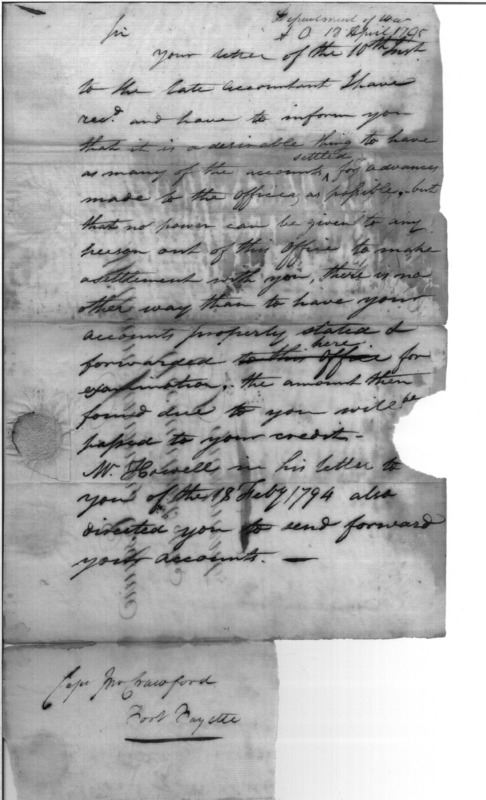 Department of War
A O 18 April 1795
Sir
Your letter of the 10th Inst
to the late accountant I have
recd. and have to inform you
that it is a desirable thing to have
as many of the accounts settled for advances
made to the Officers, as possible, but
that no power can be given to any
person out of this Office to make
a settlement with you, there is no
other way than to have your
accounts properly stated &
forwarded to this Office here for
examination, the amount then
found due to you will be
passed to your credit -
Mr. Howell in his letter to
you of the 18 Feby 1794 also
directed you to send forward
your accounts. —
Capt Jno Crawford
Fort Fayette